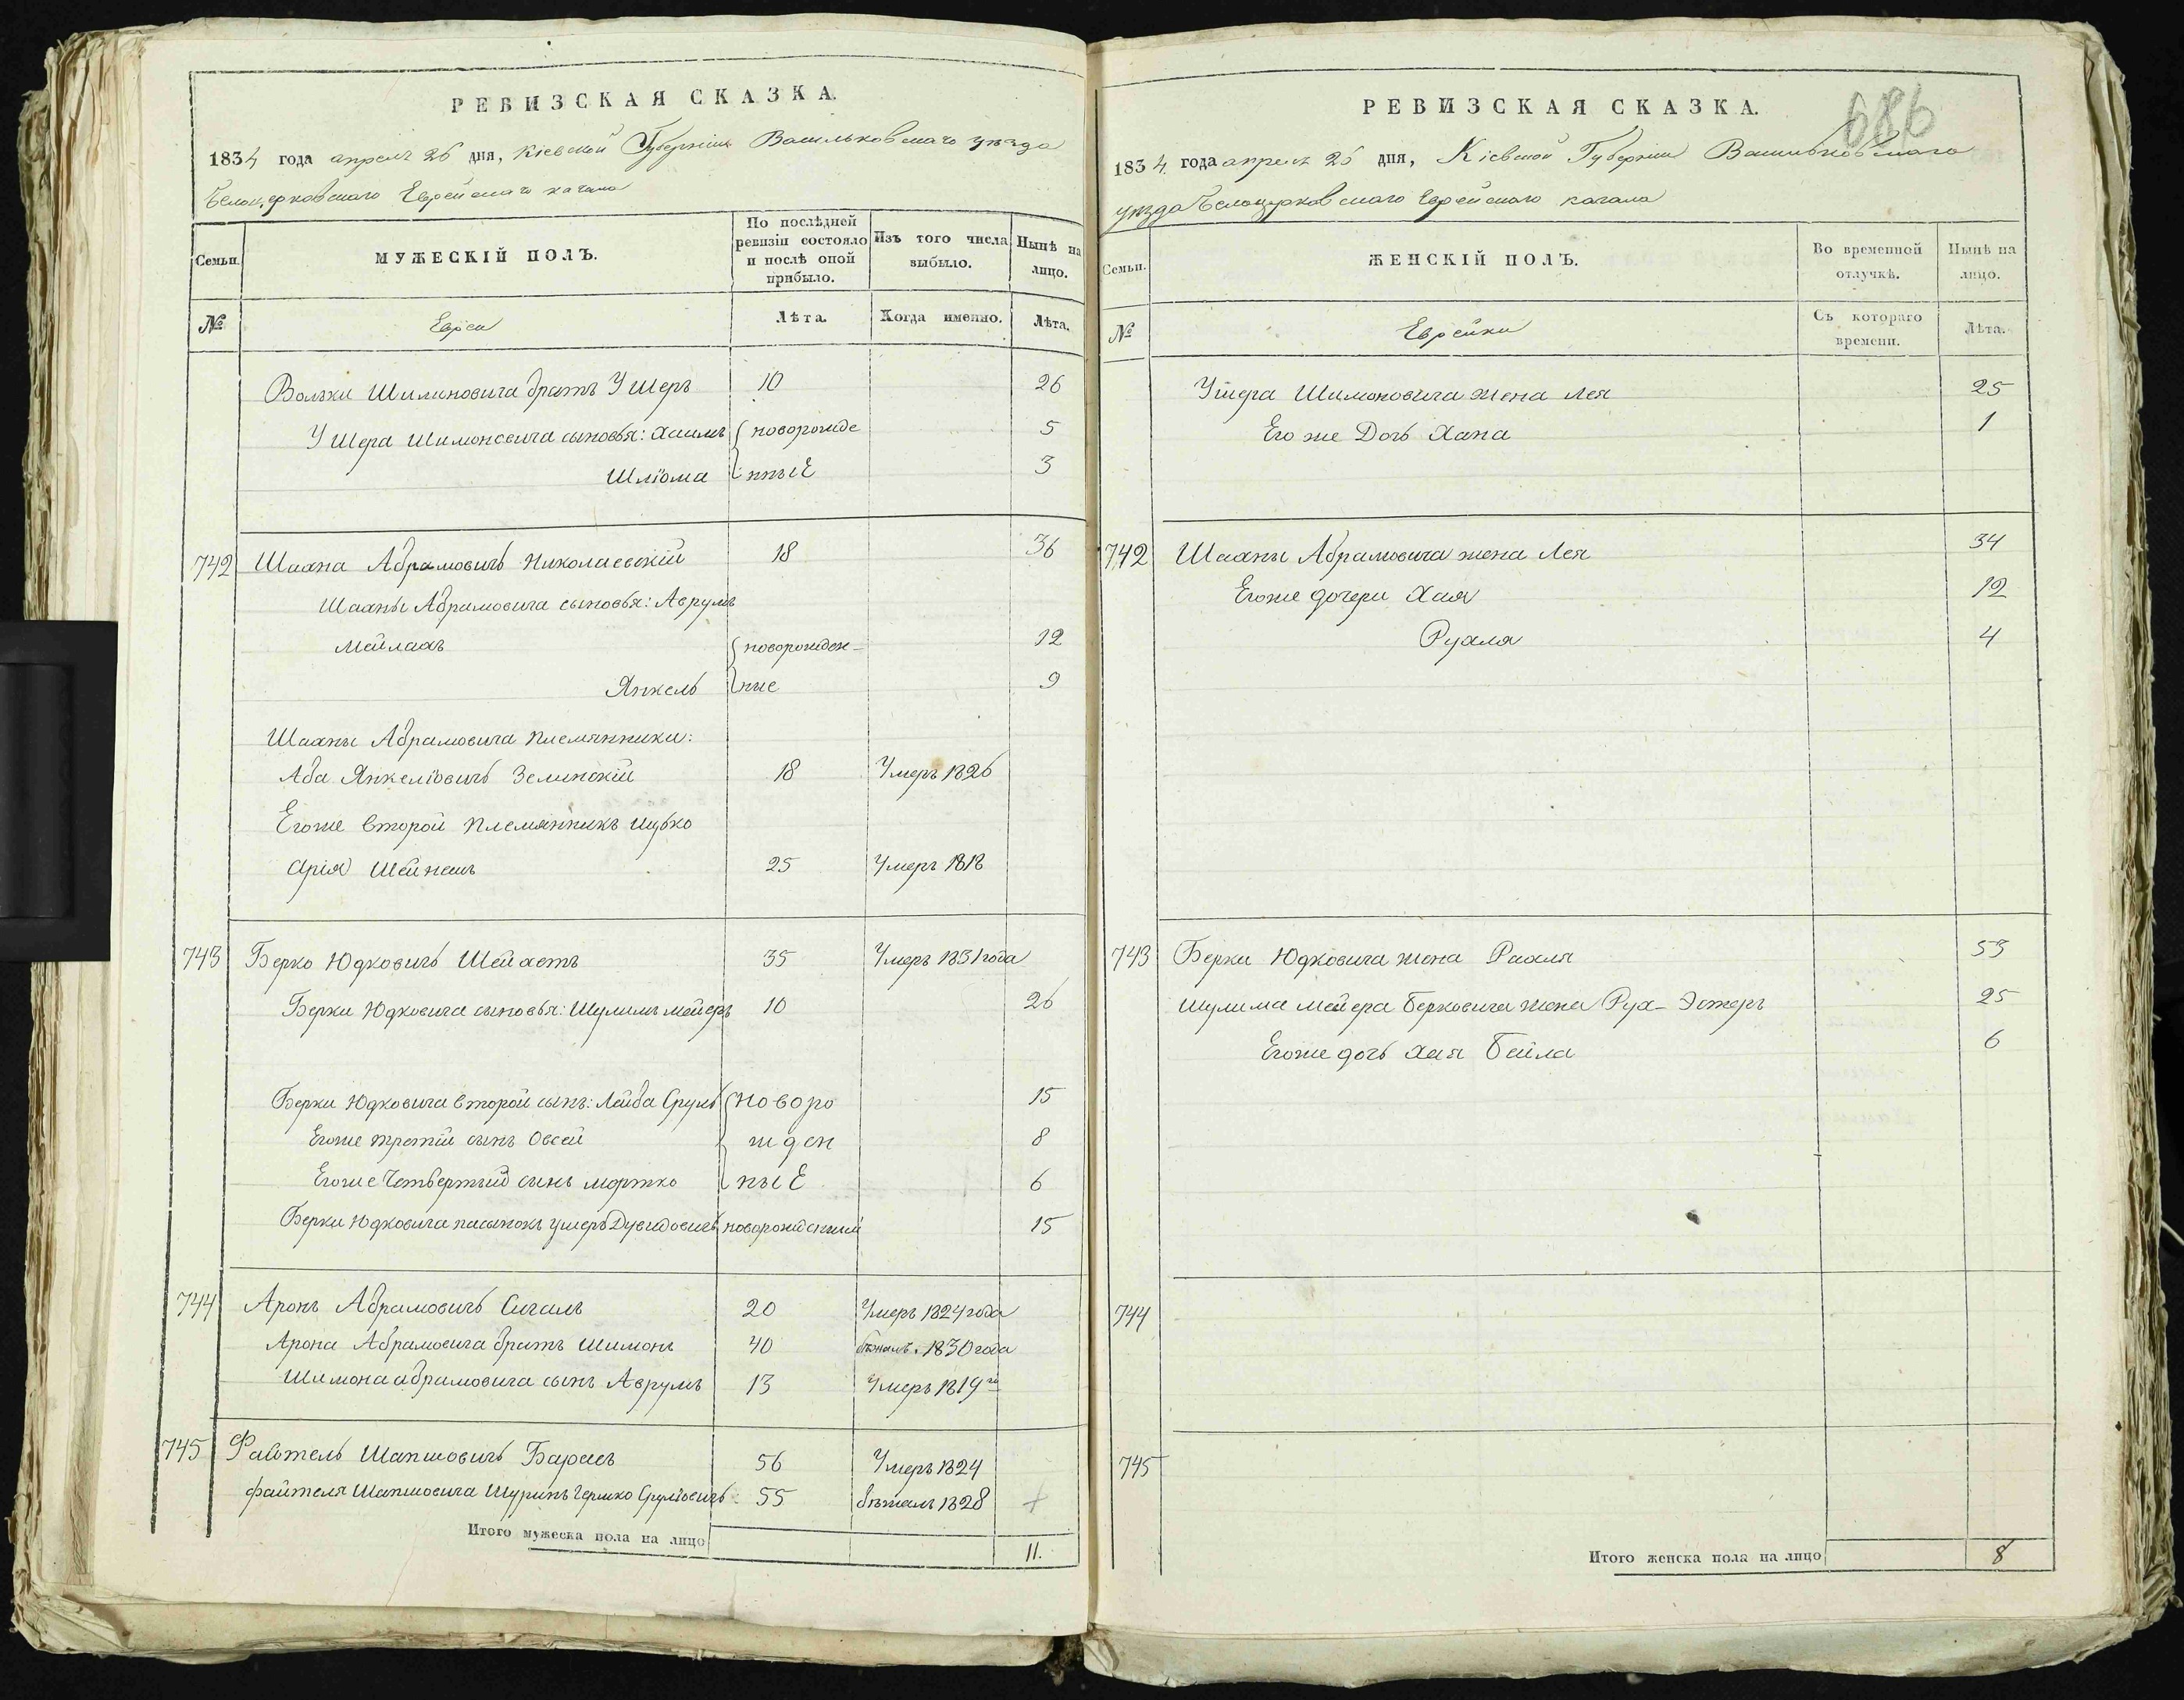 РЕВИЗСКАЯ СКАЗКА.
1834 года апреля 26 дня, Кіевской Губерніи Васильковскаго уѣзда
Белоцерковскаго Еврейскаго кагала
Семьи.
МУЖЕСКІЙ ПОЛЪ.
По послѣдней ревизіи состояло и послѣ оной прибыло.
Изъ того числа выбыло.
Нынѣ на лицо.
№
Евреи
Лѣта.
Когда именно.
Лѣта.
Вольки Шимоновича братъ Ушеръ 10 26
Ушера Шимоновича сыновья: Хаимъ новорожде 5
Шліома нныЕ 3
742 Шахна Абрамовичъ Николаевскій 18 36
Шахны Абрамовича сыновья: Аврумъ
Мейлахъ новорожден- 12
Янкель ные 9
Шахны Абрамовича племянники:
Аба Янкеліовичъ Зелинскій 18 Умеръ 1826
Егоже второй племянникъ Ицько
Арія Шейнешъ 25 Умеръ 1818
743 Берко Юдковичъ Шейхетъ 35 Умеръ 1831 года
Берки Юдковича сыновья: Шулимъ Мейеръ 10 26
Берки Юдковича второй сынъ: Лейба Сруль новоро 15
Егоже третій сынъ Овсей жден 8
Егоже Четвертый сынъ Мортко ныЕ 6
Берки Юдковича пасынокъ Ушеръ Дувидовичъ новорожденный 15
744 Аронъ Абрамовичъ Сигалъ 20 Умеръ 1824 года
Арона Абрамовича братъ Шимонъ 40 бѣжалъ. 1830 года
Шимона абрамовича сынъ Аврумъ 13 Умеръ 1819го
745 Файтель Шапшовичъ 56 Умеръ 1824
Файтеля Шапшовича Шуринъ Гершко Сруліовичъ 55 бѣжалъ 1828
Итого мужеска пола на лицо 11.
686
РЕВИЗСКАЯ СКАЗКА.
1834 года апреля 26 дня, Кіевской Губерніи Васильковскаго
уѣзда Белоцерковскаго Еврейскаго кагала
Семьи.
ЖЕНСКІЙ ПОЛЪ.
Во временной отлучкѣ.
Нынѣ на лицо.
№
Еврейки
Съ котораго времени.
Лѣта.
Ушера Шимоновича жена Лея 25
Его же Дочь Хана 1
742 Шахны Абрамовича жена Лея 34
Егоже дочери Хая 12
Рухля 4
743 Берки Юдковича жена Рахля 53
Шулима Мейера Берковича жена Рух-Эстеръ 25
Егоже дочь Хая Бейла 6
744
745
Итого женска пола на лицо 8